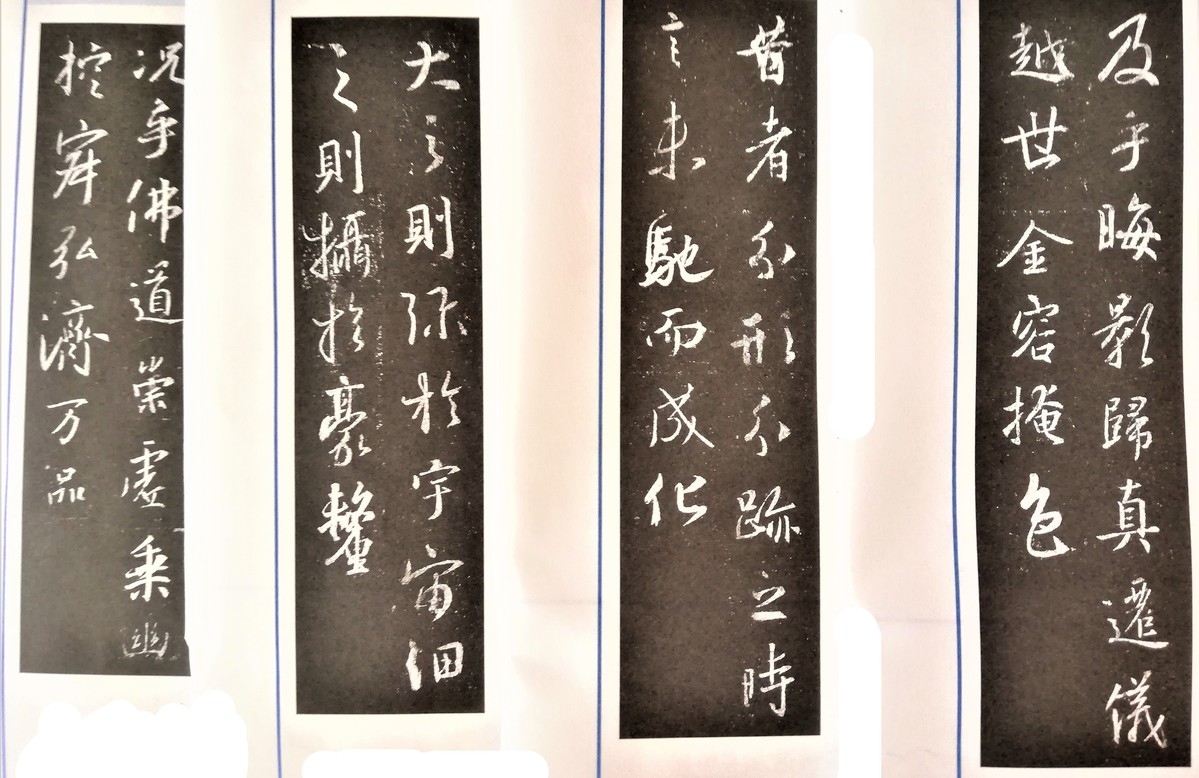 况乎佛道崇虛乘幽
控寂弘濟万品
大之則弥於宇宙細
之則攝於豪釐
昔者分形分跡之時
言未馳而成化
及乎晦影歸真遷儀
越世金容掩色